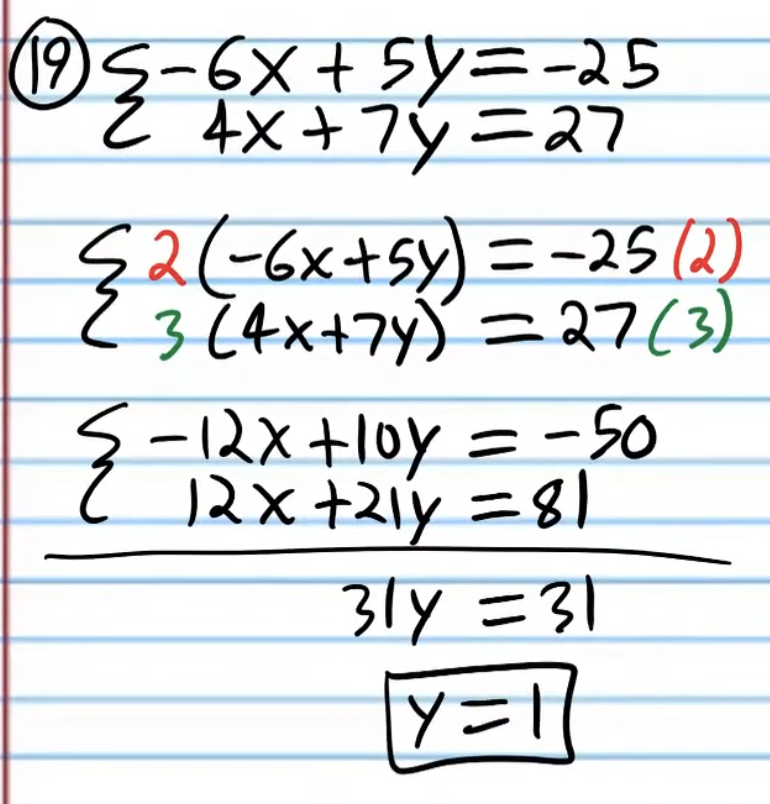 19 { -6x + 5y = -25
4x + 7y = 27
{ 2(-6x+5y) = -25(2)
3(4x+7y) = 27(3)
{ -12x +10y = -50
12x +21y = 81
31y = 31
y = 1